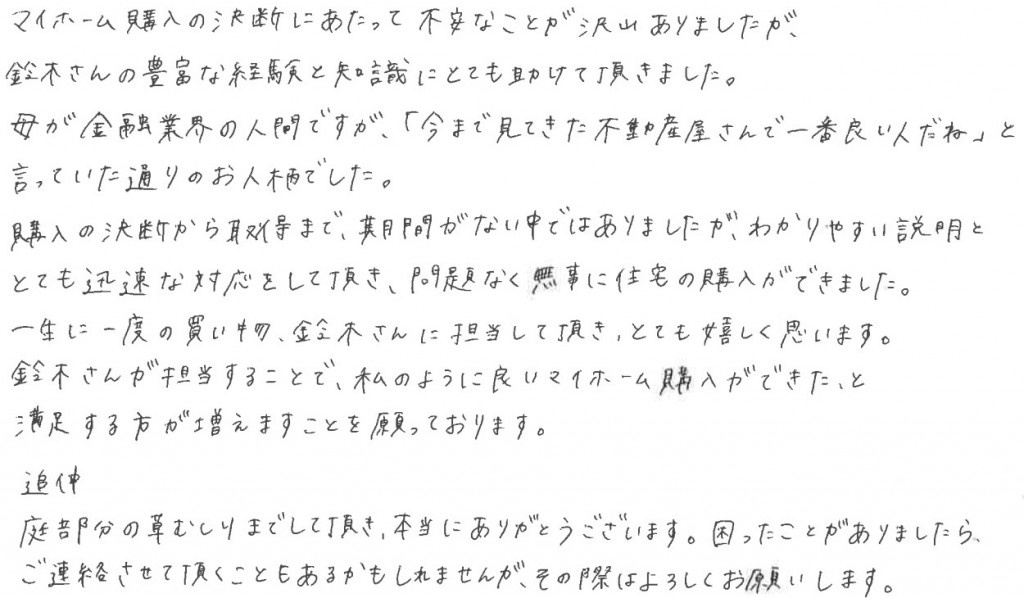 マイホーム購入の決断にあたって不安なことが沢山ありましたが、
鈴木さんの豊富な経験と知識にとても助けて頂きました。
母が金融業界の人間ですが、「今まで見てきた不動産屋さんで一番良い人だね」と
言っていた通りのお人柄でした。
購入の決断から取得まで、期間がない中ではありましたが、わかりやすい説明と
とても迅速な対応をして頂き、問題なく無事に住宅の購入ができました。
一生に一度の買い物、鈴木さんに担当して頂き、とても嬉しく思います。
鈴木さんが担当することで、私のように良いマイホーム購入ができた、と
満足する方が増えますことを願っております。
追伸
庭部分の草むしりまでして頂き、本当にありがとうございます。困ったことがありましたら、
ご連絡させて頂くこともあるかもしれませんが、その際はよろしくお願いします。